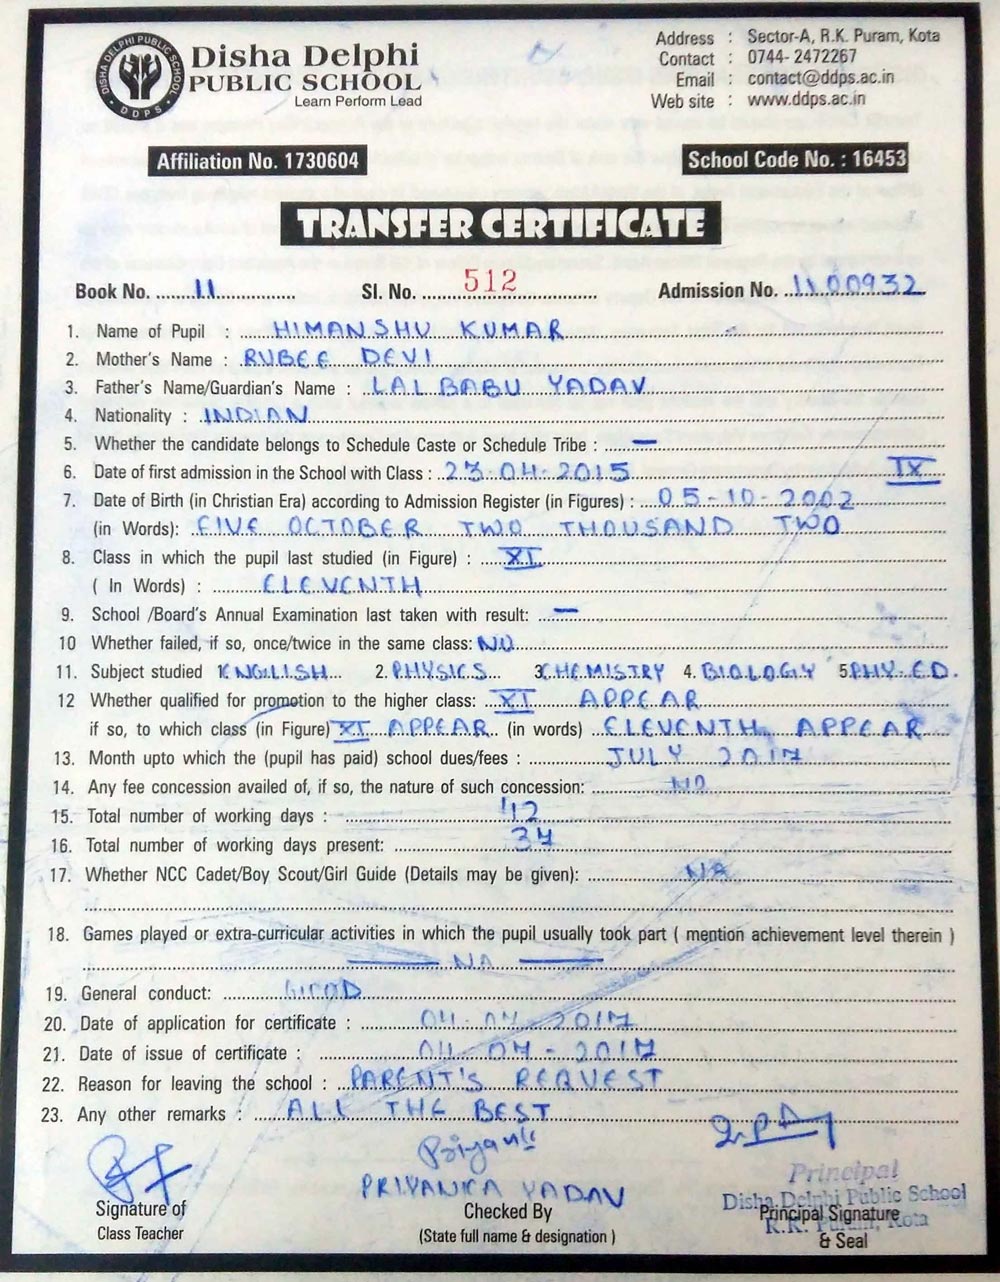 DISHA DELPHI PUBLIC SCHOOL
DDPS
Disha Delphi
PUBLIC SCHOOL
Learn Perform Lead
Address : Sector-A, R.K. Puram, Kota
Contact : 0744- 2472267
Email : contact@ddps.ac.in
Web site : www.ddps.ac.in
Affiliation No. 1730604
School Code No. : 16453
TRANSFER CERTIFICATE
Book No. 11 Sl. No. 512 Admission No. 1100932
1. Name of Pupil : HIMANSHU KUMAR
2. Mother's Name : RUBEE DEVI
3. Father's Name/Guardian's Name : LAL BABU YADAV
4. Nationality : INDIAN
5. Whether the candidate belongs to Schedule Caste or Schedule Tribe : —
6. Date of first admission in the School with Class : 23-04-2015 IX
7. Date of Birth (in Christian Era) according to Admission Register (in Figures) : 05-10-2002
(in Words): FIVE OCTOBER TWO THOUSAND TWO
8. Class in which the pupil last studied (in Figure) : XI
( In Words) : ELEVENTH
9. School /Board's Annual Examination last taken with result: —
10 Whether failed, if so, once/twice in the same class: NO
11. Subject studied 1. ENGLISH 2. PHYSICS 3. CHEMISTRY 4. BIOLOGY 5. PHY. ED.
12 Whether qualified for promotion to the higher class: XI APPEAR
if so, to which class (in Figure) XI APPEAR (in words) ELEVENTH APPEAR
13. Month upto which the (pupil has paid) school dues/fees : JULY 2017
14. Any fee concession availed of, if so, the nature of such concession: NO
15. Total number of working days : 42
16. Total number of working days present: 34
17. Whether NCC Cadet/Boy Scout/Girl Guide (Details may be given): NA
18. Games played or extra-curricular activities in which the pupil usually took part ( mention achievement level therein )
— NA —
19. General conduct: GOOD
20. Date of application for certificate : 04-07-2017
21. Date of issue of certificate : 04-07-2017
22. Reason for leaving the school : PARENT'S REQUEST
23. Any other remarks : ALL THE BEST
Priyanka
PRIYANKA YADAV
Principal
Disha Delphi Public School
R.K. Puram, Kota
Signature of
Class Teacher
Checked By
(State full name & designation )
Principal Signature
& Seal